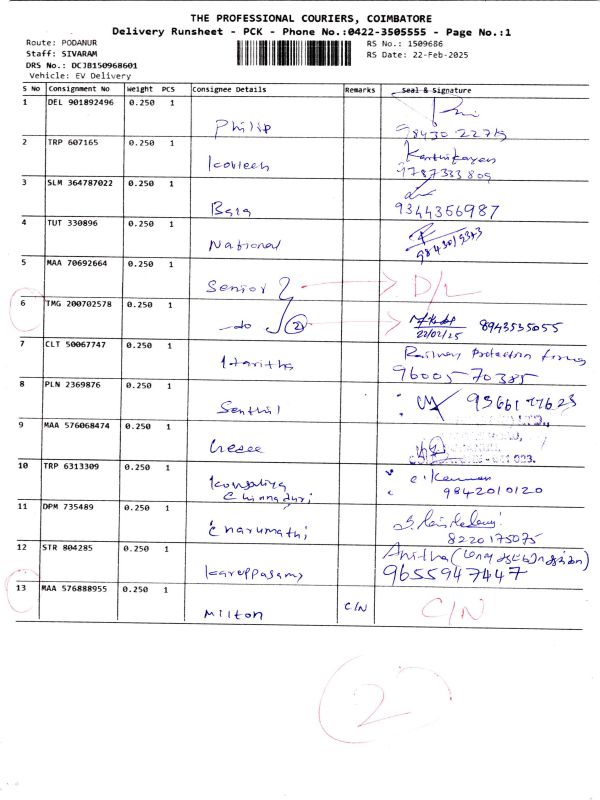 THE PROFESSIONAL COURIERS, COIMBATORE
Delivery Runsheet - PCK - Phone No.:0422-3505555 - Page No.:1
Route: PODANUR
RS No.: 1509686
Staff: SIVARAM
RS Date: 22-Feb-2025
DRS No.: DCJB150968601
Vehicle: EV Delivery
S No Consignment No Weight PCS Consignee Details Remarks Seal & Signature
1 DEL 901892496 0.250 1
Philip
2 TRP 607165 0.250 1
Karthikayan
9787333809
3 SLM 364787022 0.250 1
Bara 9344356987
4 TUT 330896 0.250 1
National
5 MAA 70692664 0.250 1
Senior D/L
6 TMG 200702578 0.250 1
-do 2
22/02/25 8943535055
7 CLT 50067747 0.250 1
Railway Protection Force
Haritha 96005 70385
8 PLN 2369876 0.250 1
Senthil
9 MAA 576068474 0.250 1
10 TRP 6313309 0.250 1
Kowsaliya
Chinnaduri 9842010120
11 DPM 735489 0.250 1
Charumathi 8220175075
12 STR 804285 0.250 1
Anitha
Kareppasamy 9655947447
13 MAA 576888955 0.250 1
Milton C/N C/N
2